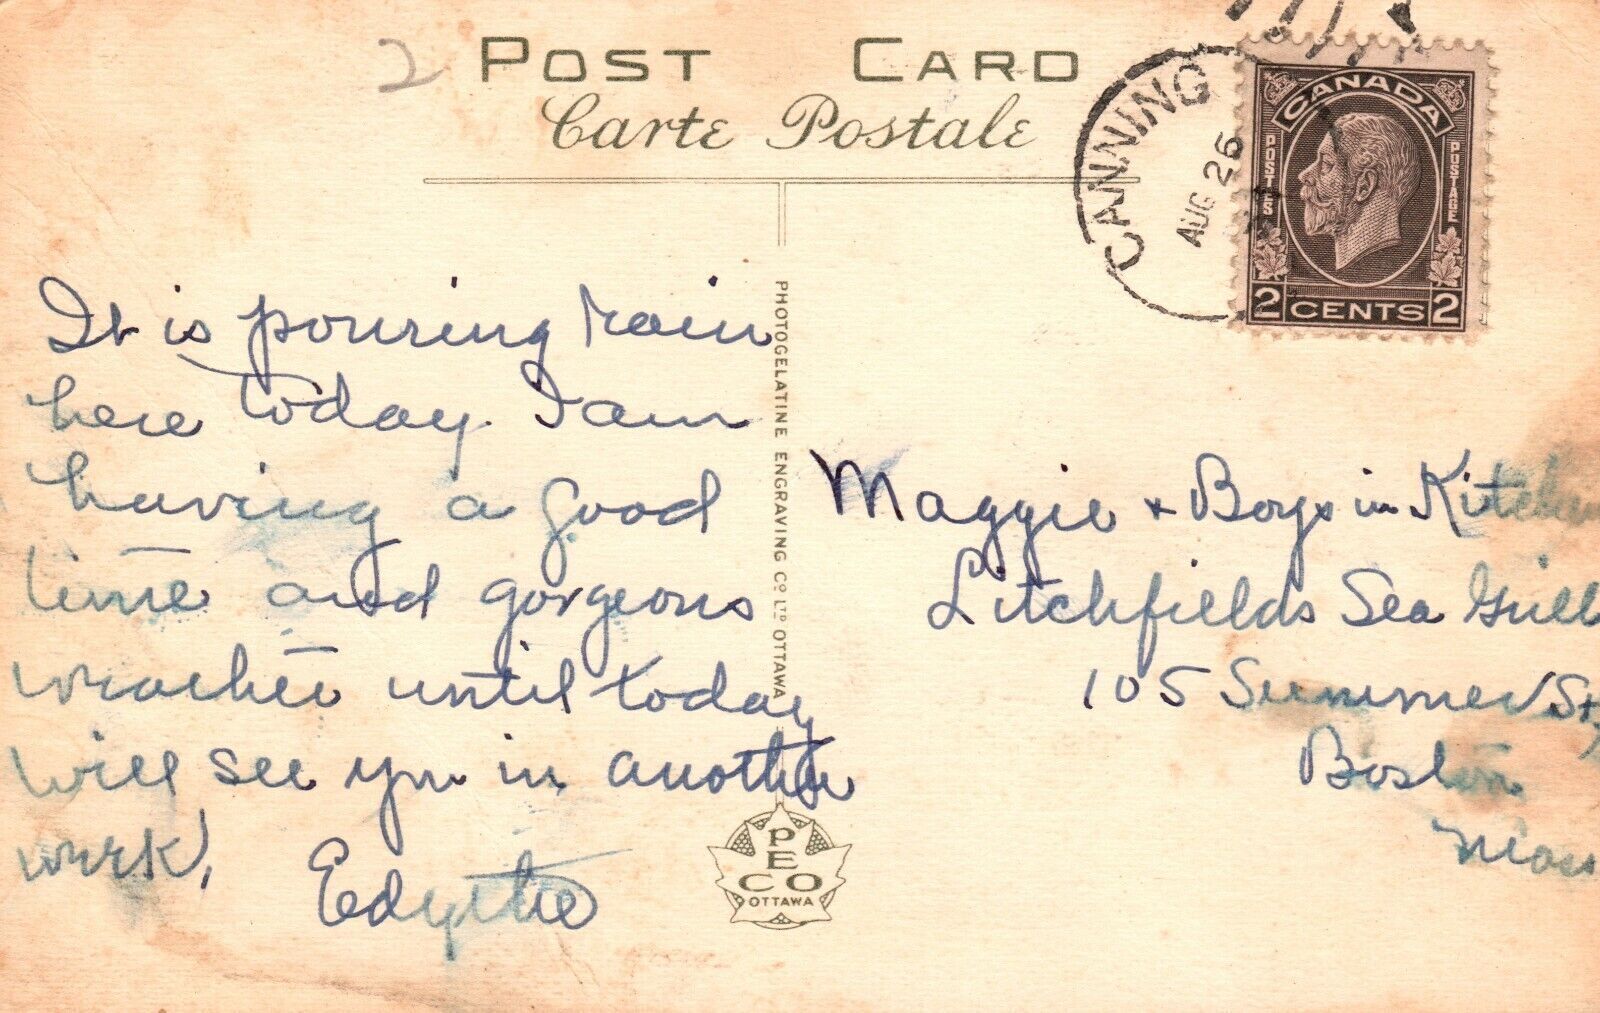 2
POST CARD
Carte Postale
CANNING
AUG 26
CANADA
POSTES
POSTAGE
2 CENTS 2
It is pouring rain
here today. I am
having a good
time and gorgeous
weather until today
will see you in another
week.
Edythe
PHOTOGELATINE ENGRAVING CO. LTD. OTTAWA
PECO
OTTAWA
Maggie + Boys in Kitchen
Litchfields Sea Grill
105 Summer St,
Boston
Mass